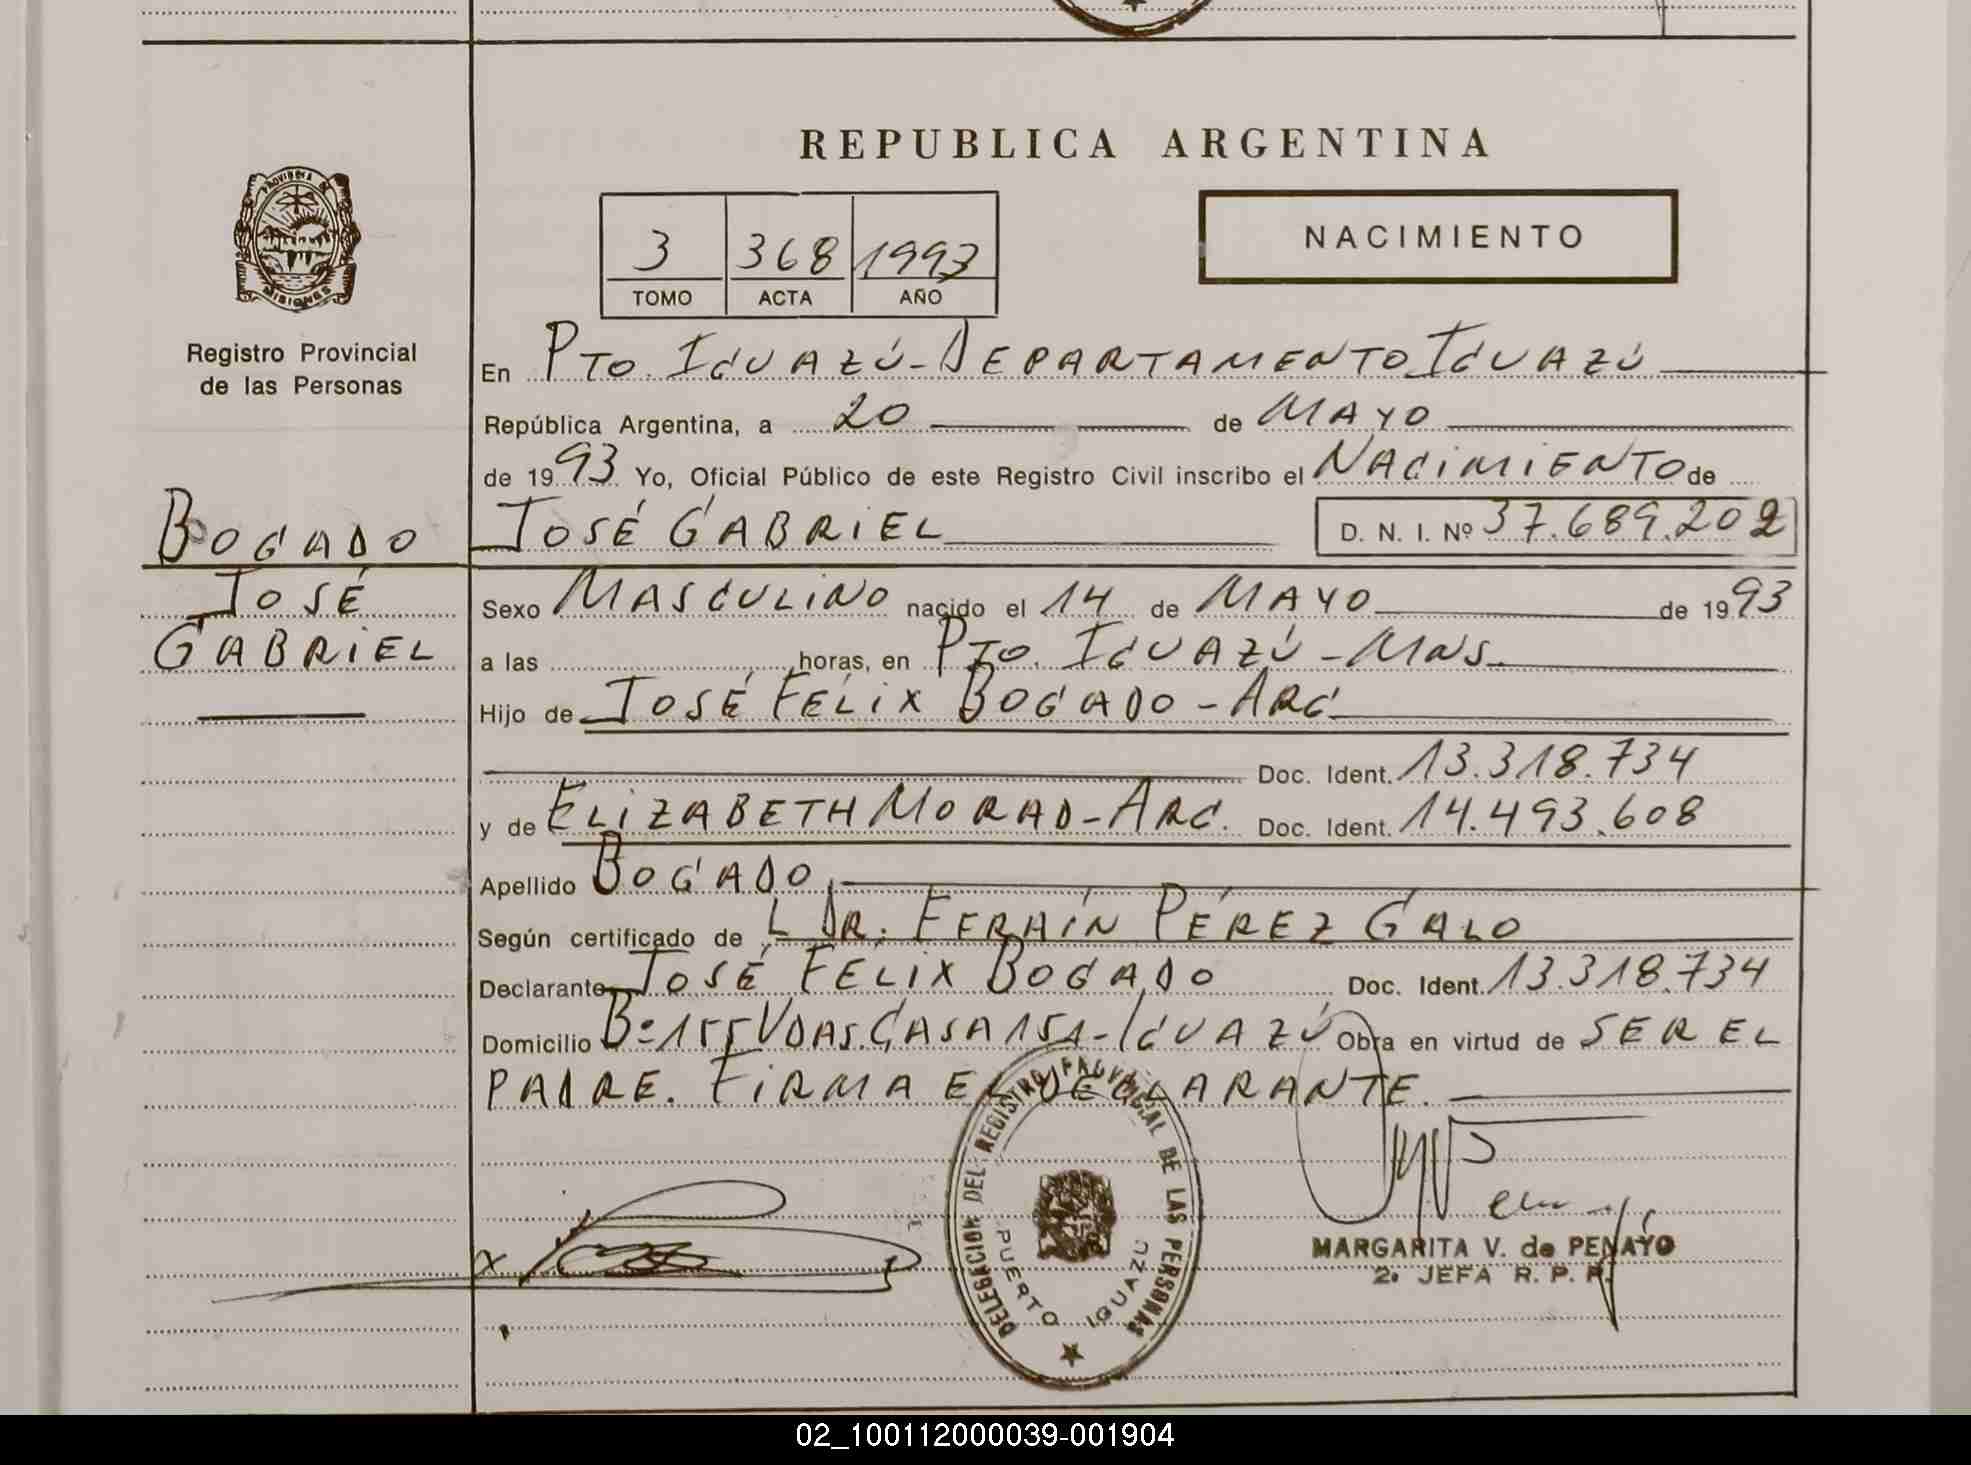 REPUBLICA ARGENTINA
PROVINCIA DE
MISIONES
Registro Provincial
de las Personas
3 368 1993
TOMO ACTA AÑO
NACIMIENTO
En PTO. IGUAZÚ - DEPARTAMENTO IGUAZÚ
República Argentina, a 20 de MAYO
de 1993 Yo, Oficial Público de este Registro Civil inscribo el NACIMIENTO de
BOGADO
JOSÉ
GABRIEL
JOSÉ GABRIEL D. N. I. Nº 37.689.202
Sexo MASCULINO nacido el 14 de MAYO de 1993
a las horas, en PTO. IGUAZÚ - MNS.
Hijo de JOSÉ FÉLIX BOGADO - ARG
Doc. Ident. 13.318.734
y de ELIZABETH MORAD - ARG. Doc. Ident. 14.493.608
Apellido BOGADO
Según certificado de DR. FERAÍN PÉREZ GALO
Declarante JOSÉ FÉLIX BOGADO Doc. Ident. 13.318.734
Domicilio Bº 155 VDAS. CASA 151 - IGUAZÚ Obra en virtud de SER EL
PADRE. FIRMA EL DECLARANTE.
DELEGACION DEL REGISTRO PROVINCIAL DE LAS PERSONAS
PUERTO IGUAZU
MARGARITA V. de PENAYO
2º JEFA R. P. P.
02_100112000039-001904